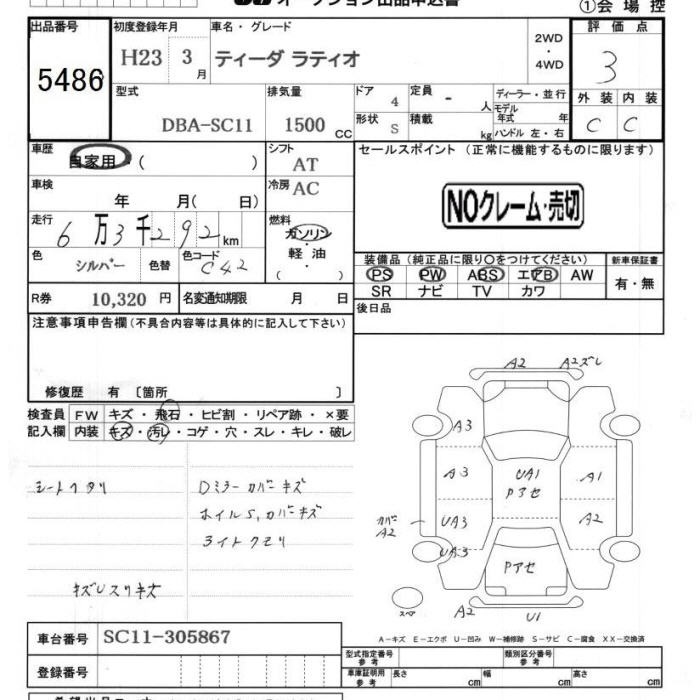 オークション出品申込書
①会場控
出品番号
5486
初度登録年月
H23 3月
車名・グレード
ティーダ ラティオ
2WD
・
4WD
評価点
3
外装 内装
C C
型式
DBA-SC11
排気量
1500 CC
ドア 4
形状 S
定員 - 人
積載 kg
ディーラー・並行
モデル年式 年
ハンドル 左・右
車歴
自家用 ( )
シフト
AT
車検
年 月( 日)
冷房
AC
セールスポイント (正常に機能するものに限ります)
NOクレーム・売切
走行
6万3千292km
燃料
ガソリン
軽油
( )
色
シルバー
色替
色コード
C42
装備品(純正品に限り〇をつけてください)
PS PW ABS エアB AW
SR ナビ TV カワ
新車保証書
有・無
R券 10,320 円
名変通知期限 月 日
後日品
注意事項申告欄(不具合内容等は具体的に記入して下さい)
修復歴 有 〔箇所 〕
検査員記入欄
FW キズ・飛石・ヒビ割・リペア跡・×要
内装 キズ・汚レ・コゲ・穴・スレ・キレ・破レ
シートヘタリ
Dミラーカバーキズ
ホイルS,カバーキズ
ライトクモリ
キズUスリキズ
A2 A2ズレ
A3
A3 UA1 A1
Pアセ
カバーA2 UA3 A2
UA3
Pアセ
スペア A2 U1
A-キズ E-エクボ U-凹み W-補修跡 S-サビ C-腐食 XX-交換済
車台番号 SC11-305867
登録番号
型式指定番号 参考
類別区分番号 参考
車庫証明用 参考
長さ cm 幅 cm 高さ cm